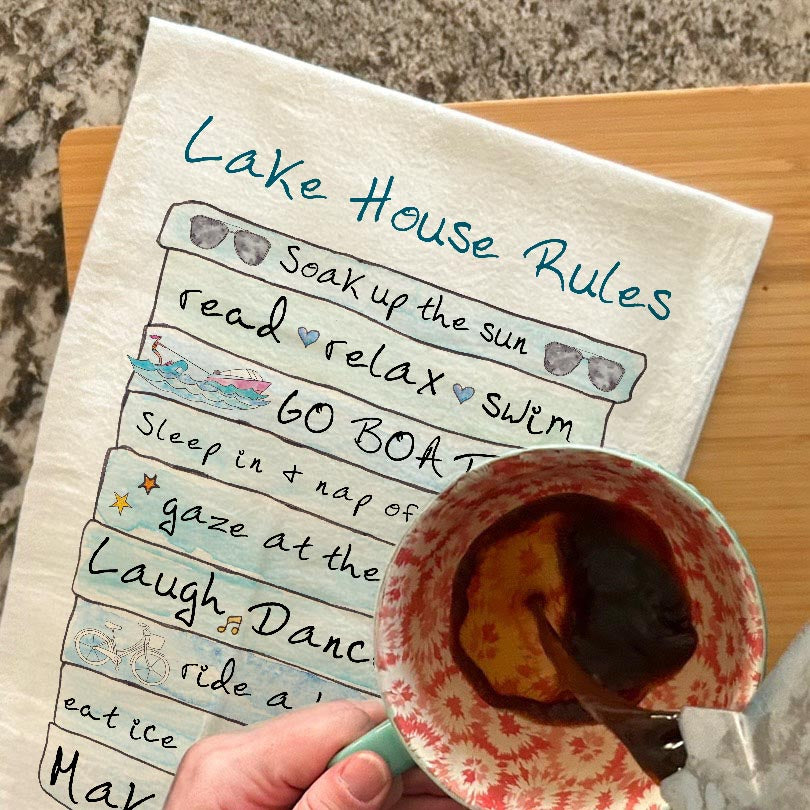 Lake House Rules
Soak up the sun
read relax swim
GO BOAT
Sleep in + nap of
gaze at the
Laugh Danc
ride a
eat ice
Mak